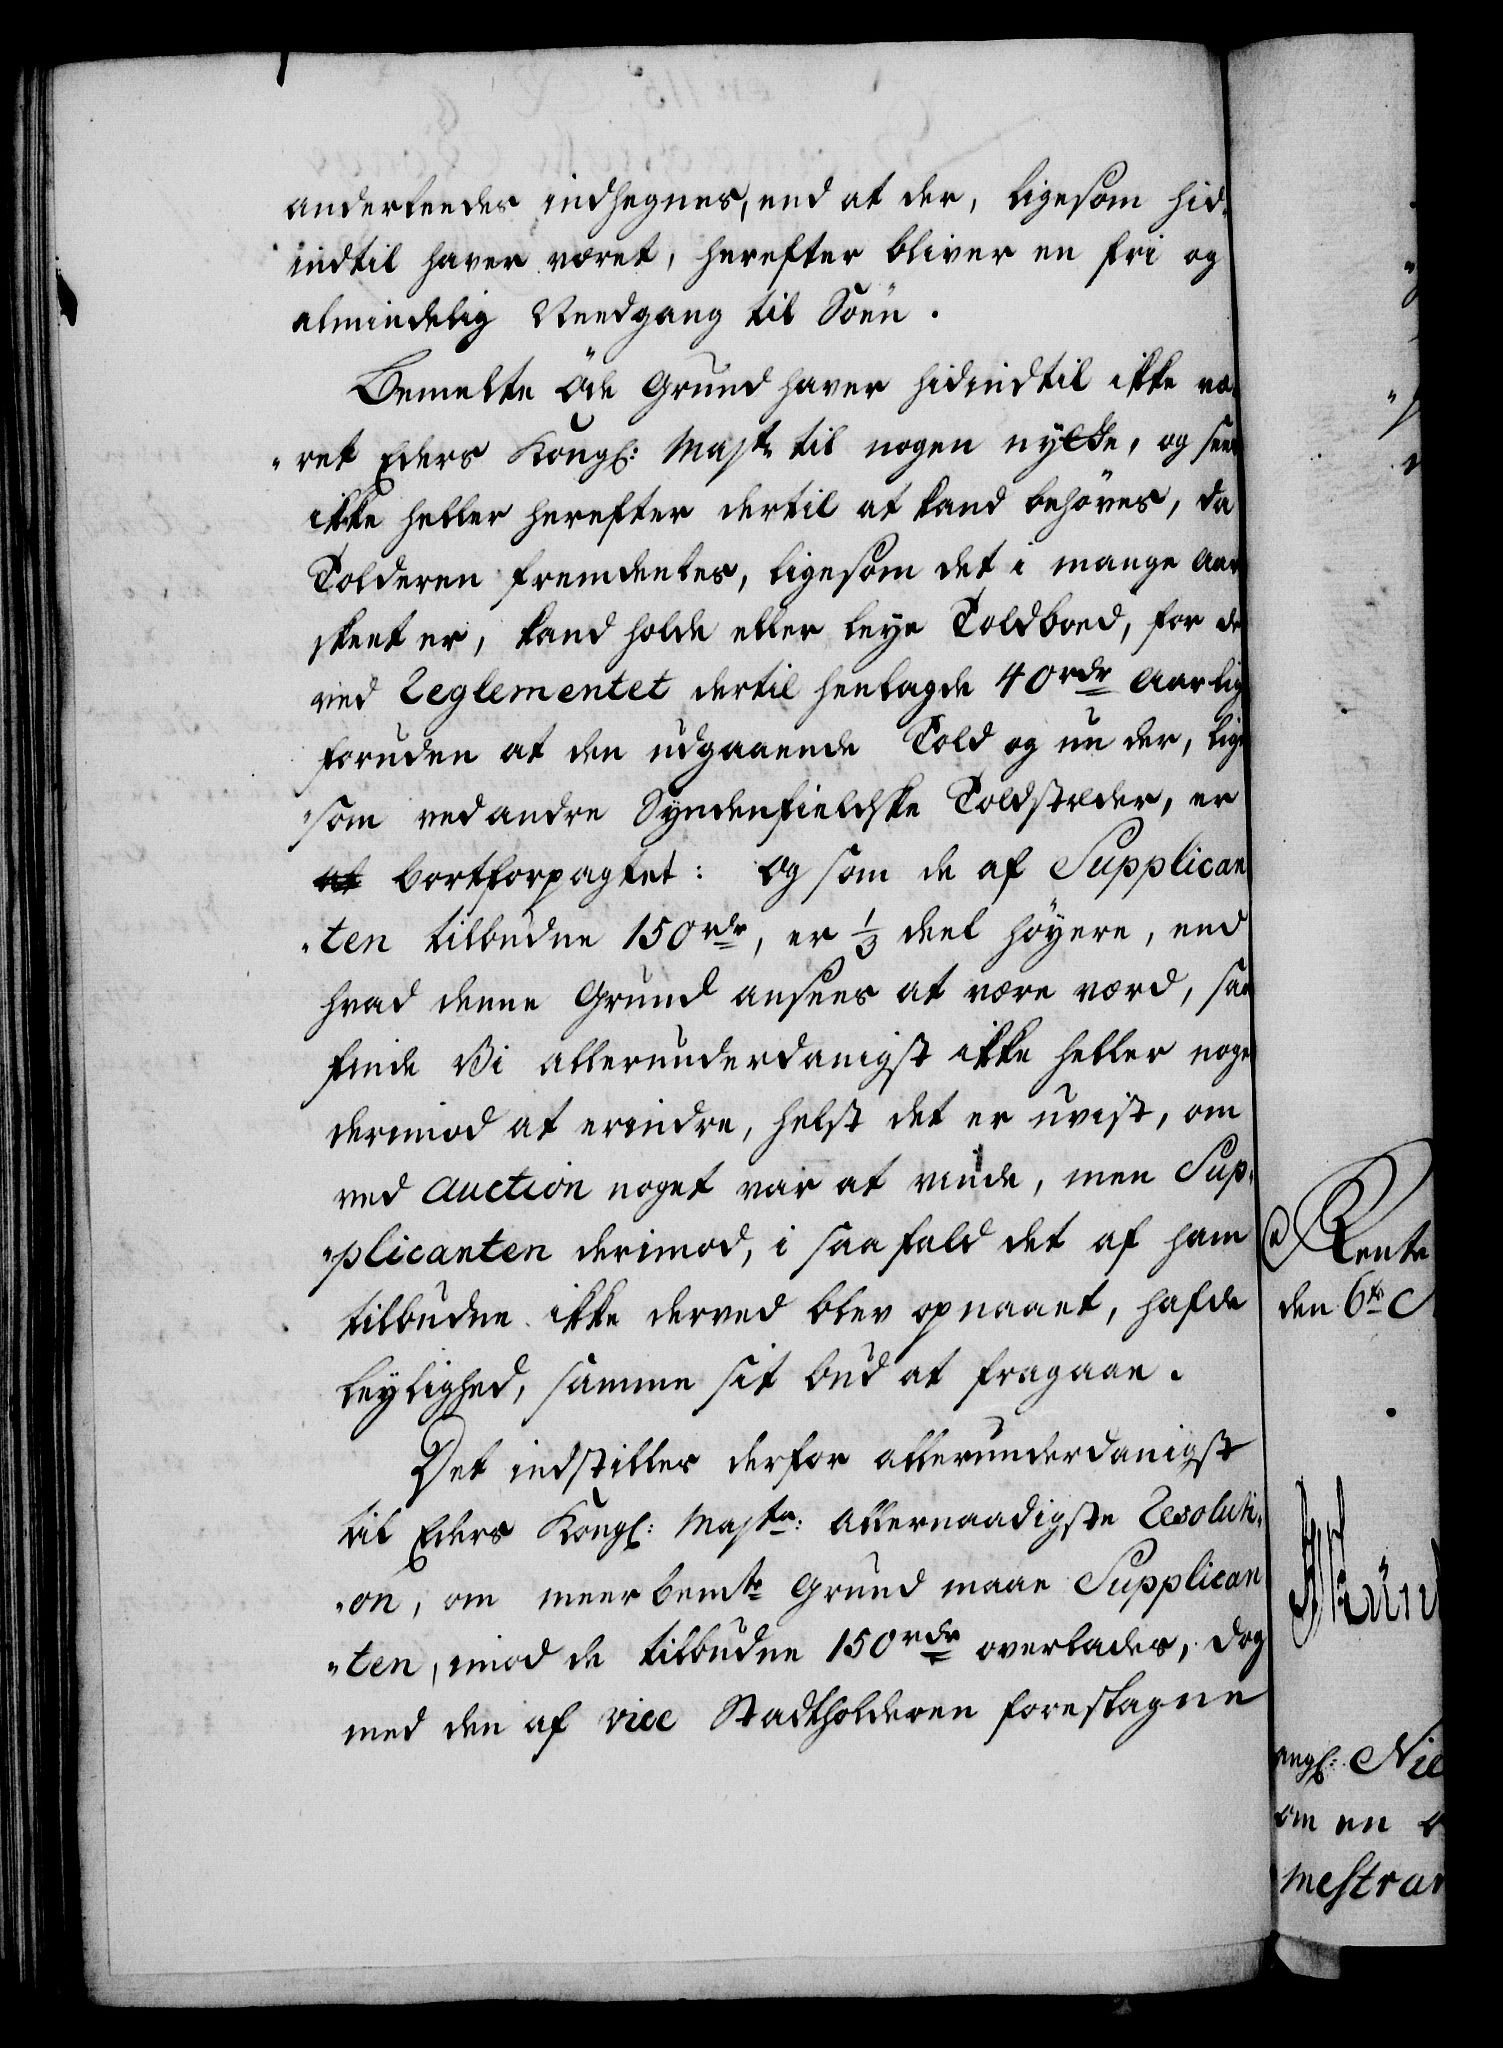 anderleedes indhegnes, end at der, ligesom hid-
indtil haver været, herefter bliver en fri og
almindelig Needgang til Söen.
Bemelte öde Grund haver hidindtil ikke væ-
ret Eders Kongl: Mayst: til nogen nytte, og seer
ikke heller herefter dertil at kand behöves, da
Tolderen fremdeeles, ligesom det i mange Aar
skeet er, kand holde eller leye Toldboed, for de
ved Reglementet dertil henlagde 40 rdr Aarlig
foruden at den udgaaende Told og nu der, lige
som ved andre Syndenfieldske Toldstæder, er
bortforpagtet: Og som de af Supplican
ten tilbudne 150 rdr, er 1/3 deel höyere, end
hvad denne Grund ansees at være værd, saa
finde Vi allerunderdanigst ikke heller noget
derimod at erindre, helst det er uvist, om
ved Auction noget var at vinde, men Sup-
plicanten derimod, i saa fald det af ham
tilbudne ikke derved blev opnaaet, hafde
leylighed, samme sit bud at fragaae.
Det indstilles derfor allerunderdanigst
til Eders Kongl: Maysts: allernaadigste Resoluti-
on, om meerbemte Grund maae Supplican
ten, imod de tilbudne 150 rdr overlades, dog
med den af vice Stadtholderen foreslagne
Rente
den 6te
Nie
om en
mestran